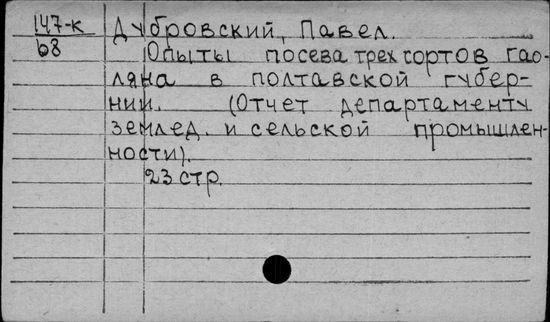 147-к Дубровский, Павел.
68 Опыты посева трех сортов гао-
ляна в полтавской губер-
нии. (Отчет департаменту
землед. и сельской промышлен-
ности).
23 стр.